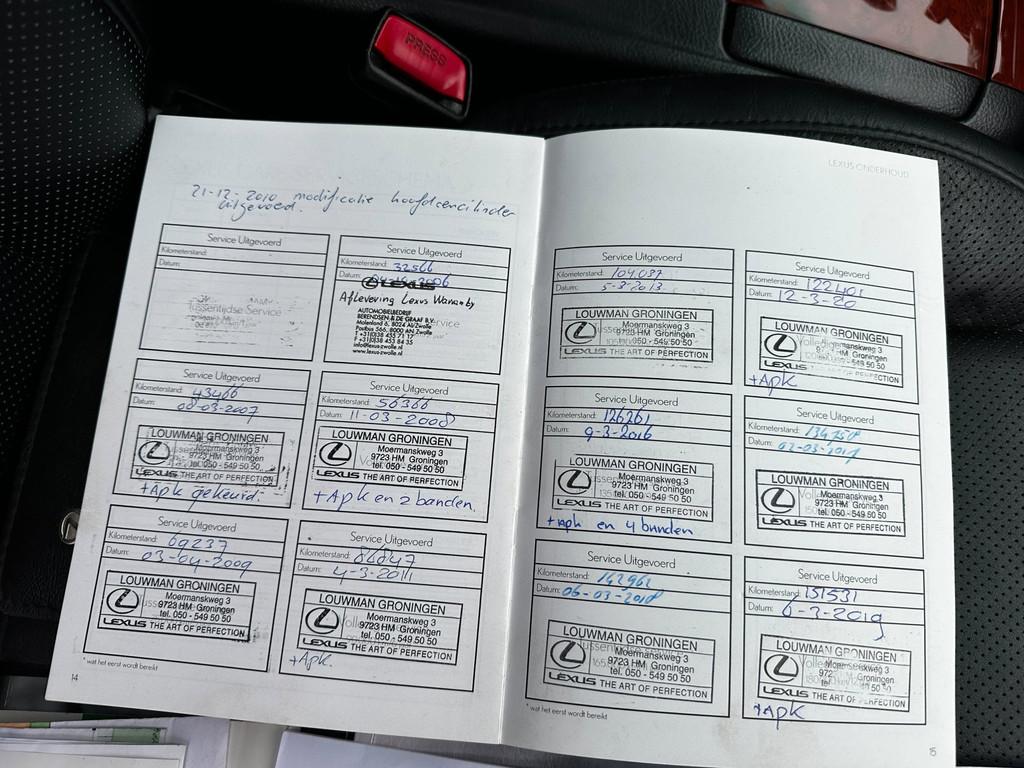 PRESS
21-12-2010 modificatie hoofdremcilinder
uitgevoerd.
Service Uitgevoerd
Kilometerstand:
Datum:
Tussentijdse Service
Service Uitgevoerd
Kilometerstand: 32566
Datum:
Aflevering Lexus Warranty
AUTOMOBIELBEDRIJF
BERENDSEN & DE GRAAF B.V.
Malenland 6, 8024 AI Zwolle
Postbus 566, 8000 AN Zwolle
T +31(0)38 455 71 17
F +31(0)38 453 84 35
info@lexus-zwolle.nl
www.lexus-zwolle.nl
Service Uitgevoerd
Kilometerstand: 43466
Datum: 08-03-2007
LOUWMAN GRONINGEN
Moermanskweg 3
9723 HM Groningen
tel. 050 - 549 50 50
LEXUS THE ART OF PERFECTION
+Apk gekeurd.
Service Uitgevoerd
Kilometerstand: 56366
Datum: 11-03-2008
LOUWMAN GRONINGEN
Moermanskweg 3
9723 HM Groningen
tel. 050 - 549 50 50
LEXUS THE ART OF PERFECTION
+Apk en 2 banden.
Service Uitgevoerd
Kilometerstand: 69237
Datum: 03-04-2009
LOUWMAN GRONINGEN
Moermanskweg 3
9723 HM Groningen
tel. 050 - 549 50 50
LEXUS THE ART OF PERFECTION
Service Uitgevoerd
Kilometerstand: 86847
Datum: 4-3-2011
LOUWMAN GRONINGEN
Moermanskweg 3
9723 HM Groningen
tel. 050 - 549 50 50
LEXUS THE ART OF PERFECTION
+Apk.
* wat het eerst wordt bereikt
14
LEXUS ONDERHOUD
Service Uitgevoerd
Kilometerstand: 104.037
Datum: 5-3-2013
LOUWMAN GRONINGEN
Moermanskweg 3
9723 HM Groningen
050 - 549 50 50
LEXUS THE ART OF PERFECTION
Service Uitgevoerd
Kilometerstand: 122401
Datum: 12-3-20
LOUWMAN GRONINGEN
Moermanskweg 3
9723 HM Groningen
tel. 050 - 549 50 50
LEXUS THE ART OF PERFECTION
+Apk
Service Uitgevoerd
Kilometerstand: 126261
Datum: 9-3-2016
LOUWMAN GRONINGEN
Moermanskweg 3
9723 HM Groningen
tel. 050 - 549 50 50
LEXUS THE ART OF PERFECTION
+apk en 4 banden
Service Uitgevoerd
Kilometerstand: 134758
Datum: 02-03-2017
LOUWMAN GRONINGEN
Moermanskweg 3
9723 HM Groningen
tel. 050 - 549 50 50
LEXUS THE ART OF PERFECTION
Service Uitgevoerd
Kilometerstand: 142962
Datum: 06-03-2018
LOUWMAN GRONINGEN
Moermanskweg 3
9723 HM Groningen
tel. 050 - 549 50 50
LEXUS THE ART OF PERFECTION
Service Uitgevoerd
Kilometerstand: 151531
Datum: 6-3-2019
LOUWMAN GRONINGEN
Moermanskweg 3
Groningen
50 50
LEXUS THE ART OF PERFECTION
+Apk
* wat het eerst wordt bereikt
15